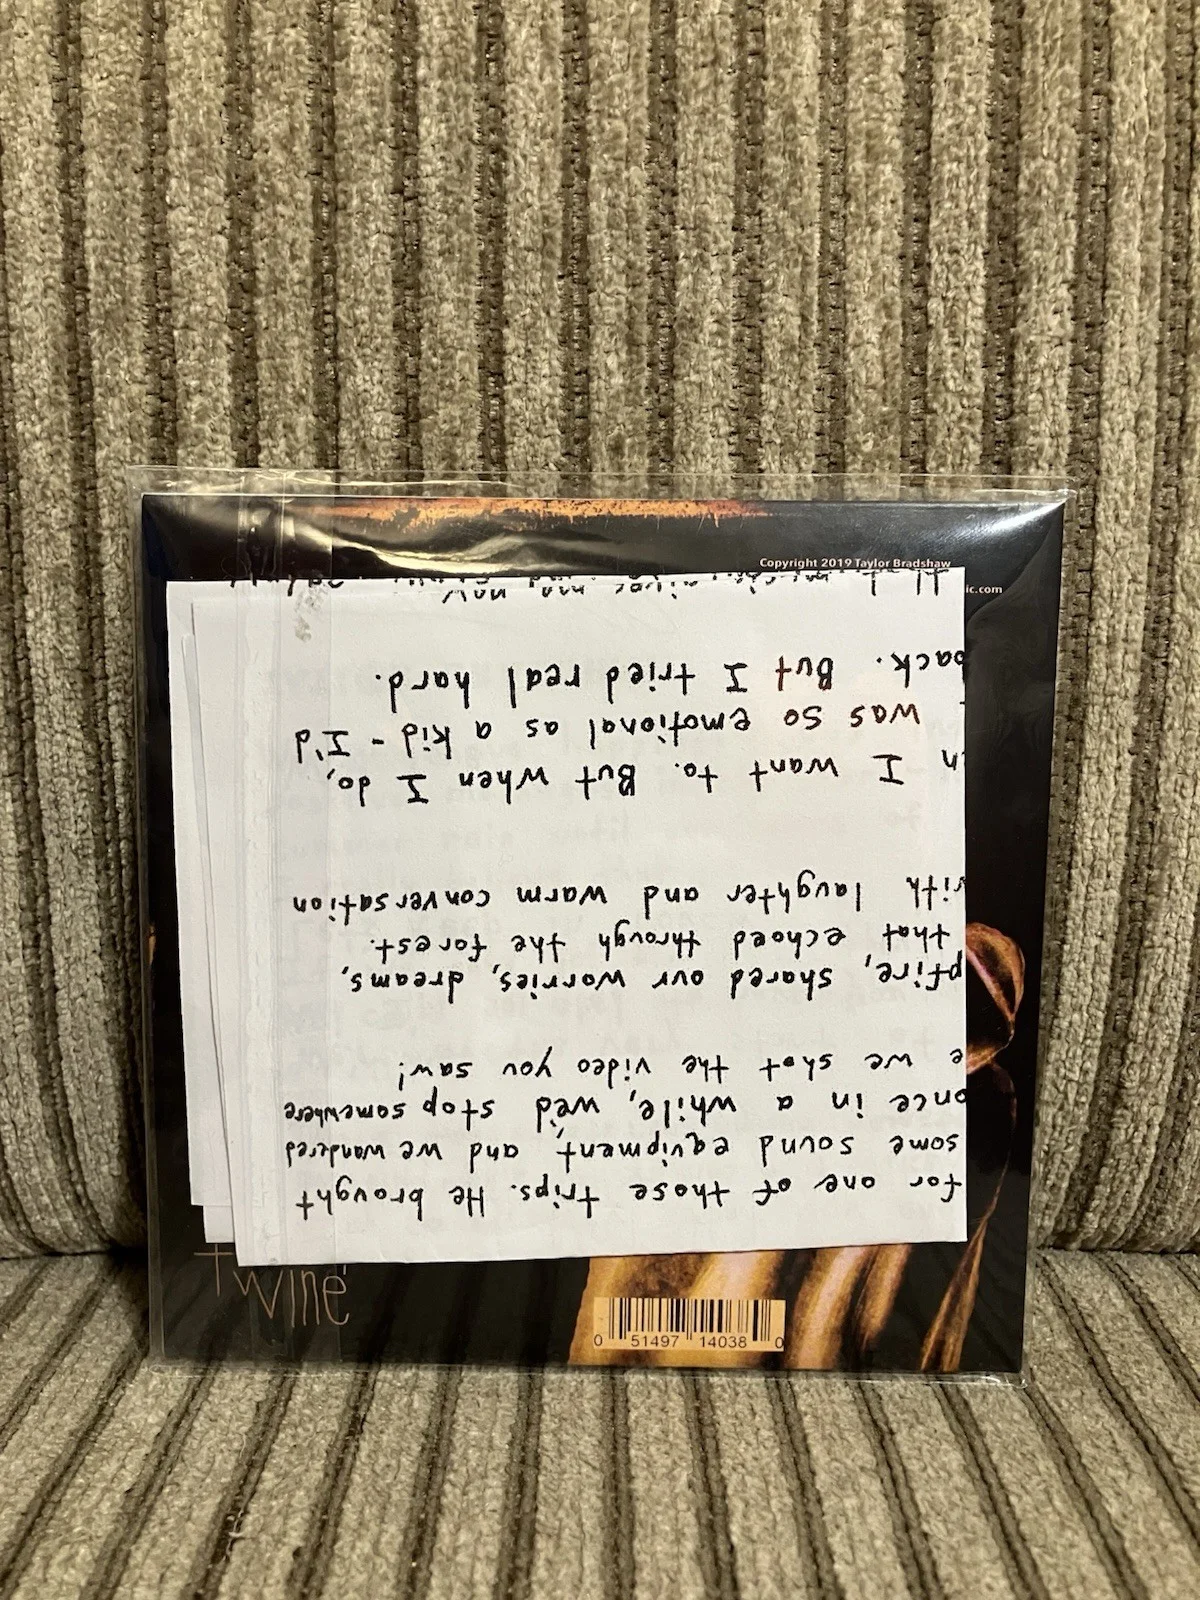 Copyright 2019 Taylor Bradshaw
ic.com
for one of those trips. He brought
some sound equipment, and we wandered
once in a while, we'd stop somewhere
e we shot the video you saw!
pfire, shared our worries, dreams,
that echoed through the forest.
ith laughter and warm conversation
n I want to. But when I do,
was so emotional as a kid - I'd
back. But I tried real hard.
gives me, now
Twine
0 51497 14038 0